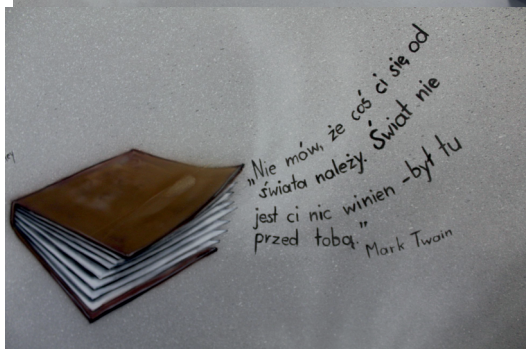 „Nie mów, że coś ci się od
świata należy. Świat nie
jest ci nic winien - był tu
przed tobą."
Mark Twain